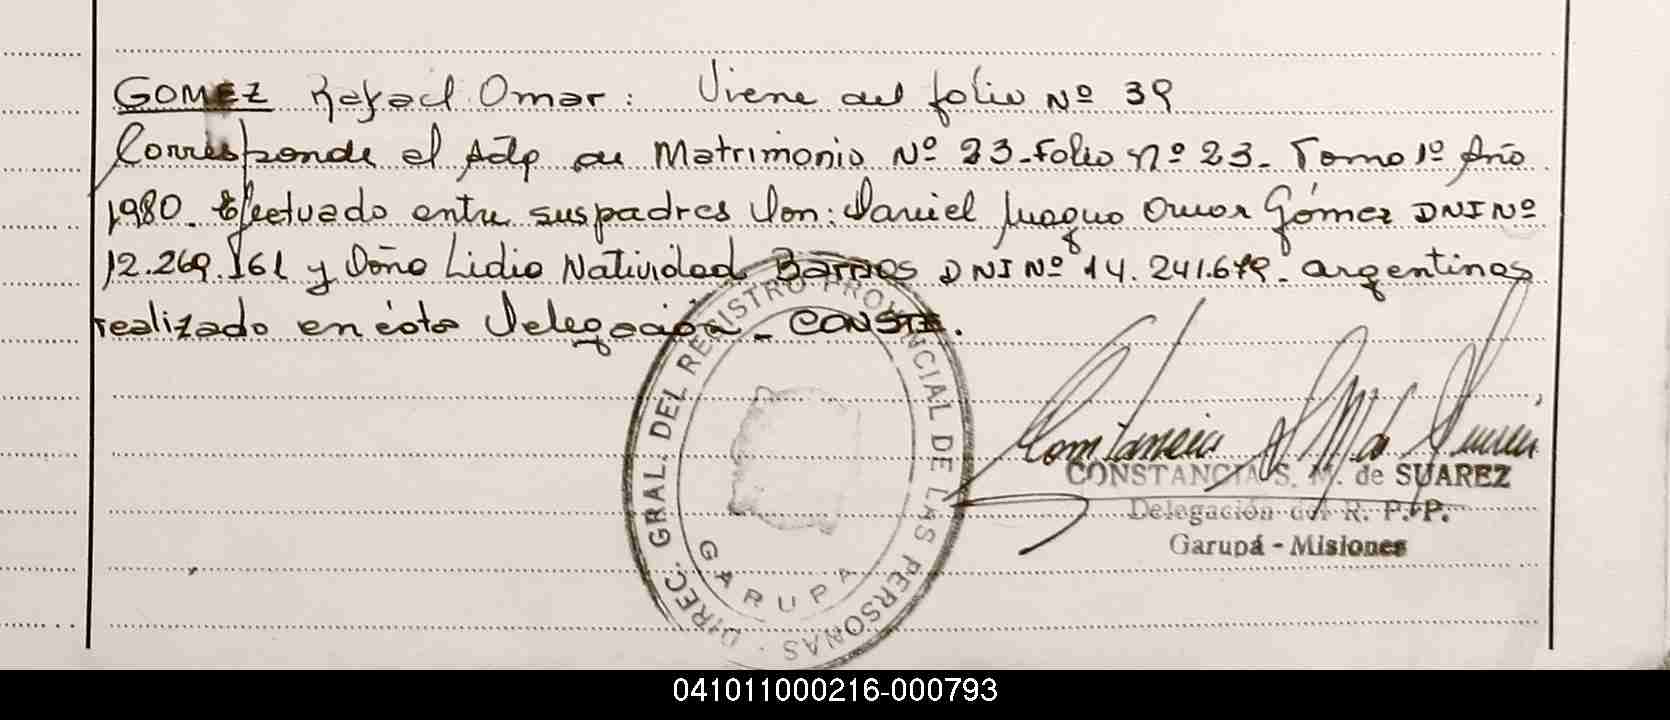 GOMEZ Rafael Omar: Viene del folio Nº 39
Corresponde al Acta de Matrimonio Nº 23 - Folio nº 23 - Tomo 1º Año
1980. Efectuado entre sus padres Don: Daniel Omar Gómez DNI Nº
12.269.161 y Doña Lidia Natividad Barrios DNI Nº 14.241.679. argentinos
realizado en ésta Delegación - CONSTE.
DIREC. GRAL. DEL REGISTRO PROVINCIAL DE LAS PERSONAS
GARUPA
CONSTANCIA S. M. de SUAREZ
Delegación del R. P. P.
Garupá - Misiones
041011000216-000793